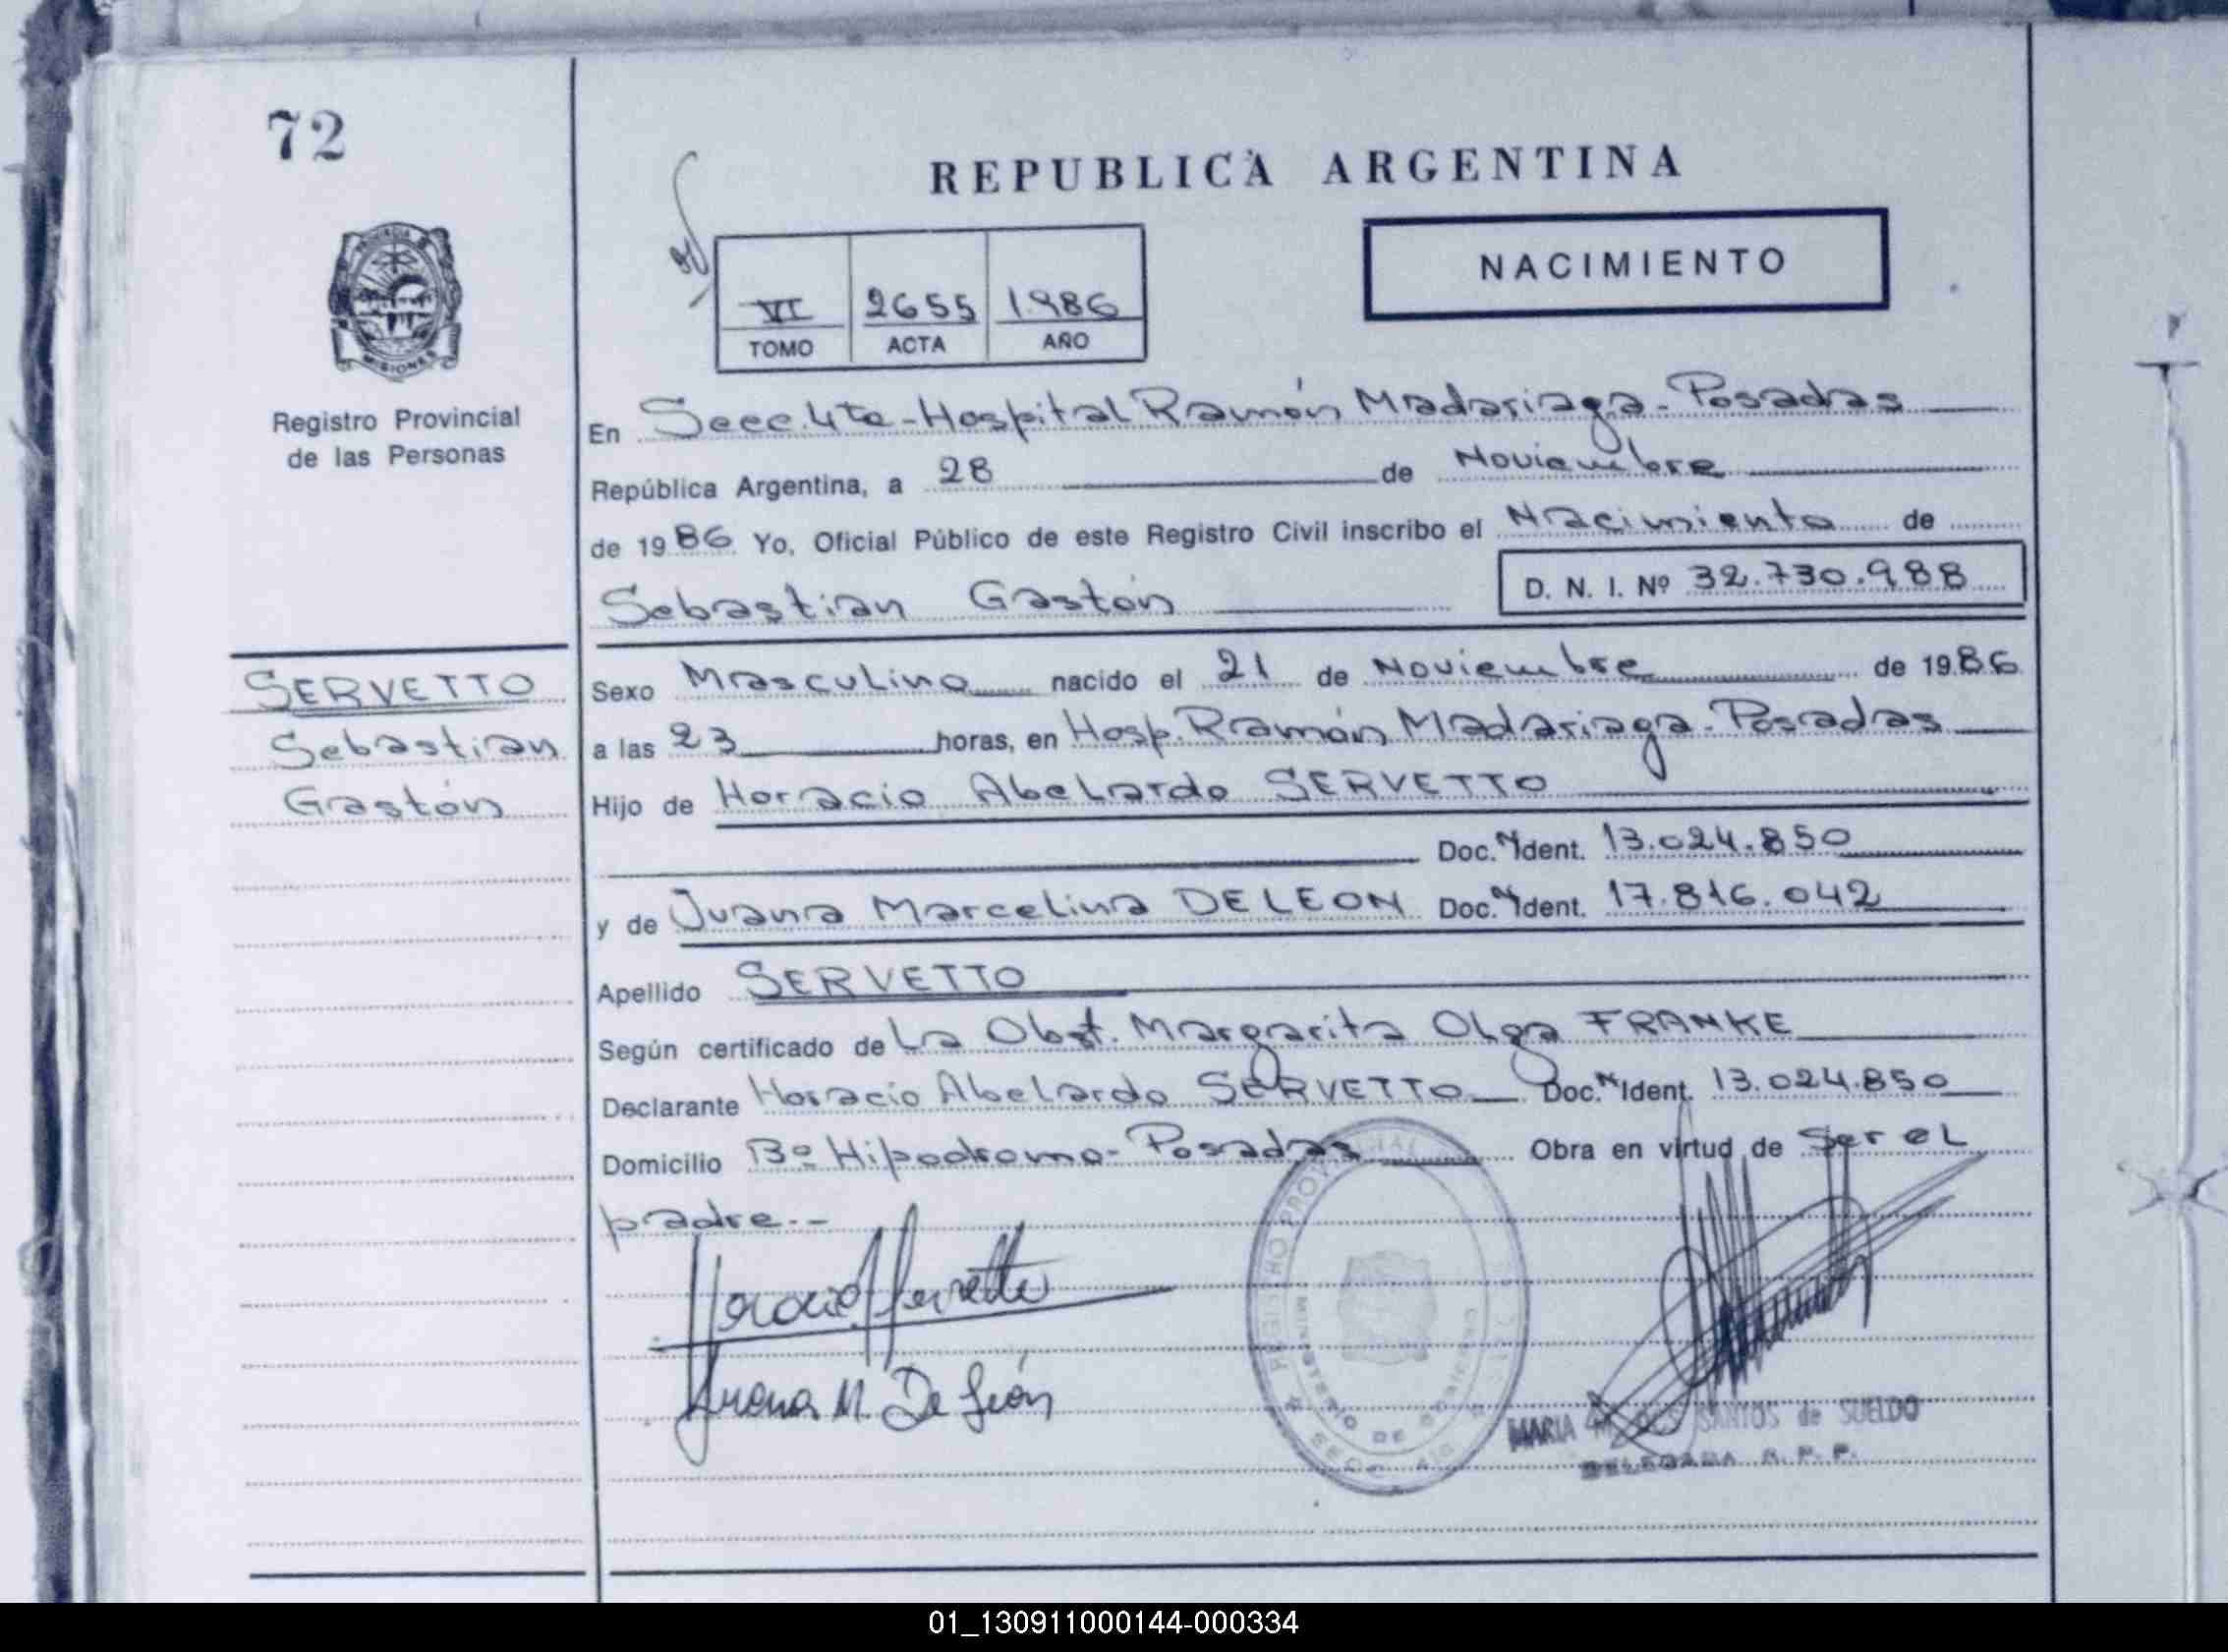 72
REPUBLICA ARGENTINA
NACIMIENTO
VI 2655 1.986
TOMO ACTA AÑO
PROVINCIA DE
MISIONES
Registro Provincial
de las Personas
En Secc. 4ta - Hospital Ramón Madariaga - Posadas
República Argentina, a 28 de Noviembre
de 1986 Yo, Oficial Público de este Registro Civil inscribo el Nacimiento de
Sebastian Gastón D. N. I. Nº 32.730.988
SERVETTO
Sebastian
Gastón
Sexo Masculino nacido el 21 de Noviembre de 1986
a las 23 horas, en Hosp. Ramón Madariaga - Posadas
Hijo de Horacio Abelardo SERVETTO
Doc. Ident. 13.024.850
y de Juana Marcelina DE LEON Doc. Ident. 17.816.042
Apellido SERVETTO
Según certificado de La Obst. Margarita Olga FRANKE
Declarante Horacio Abelardo SERVETTO Doc. Ident. 13.024.850
Domicilio Bº Hipodromo - Posadas Obra en virtud de Ser el
padre.-
Horacio A Servetto
Juana M. De León
REGISTRO PROVINCIAL
MINISTERIO DE
MARIA DOS SANTOS de SUELDO
DELEGADA R. P. P.
01_130911000144-000334